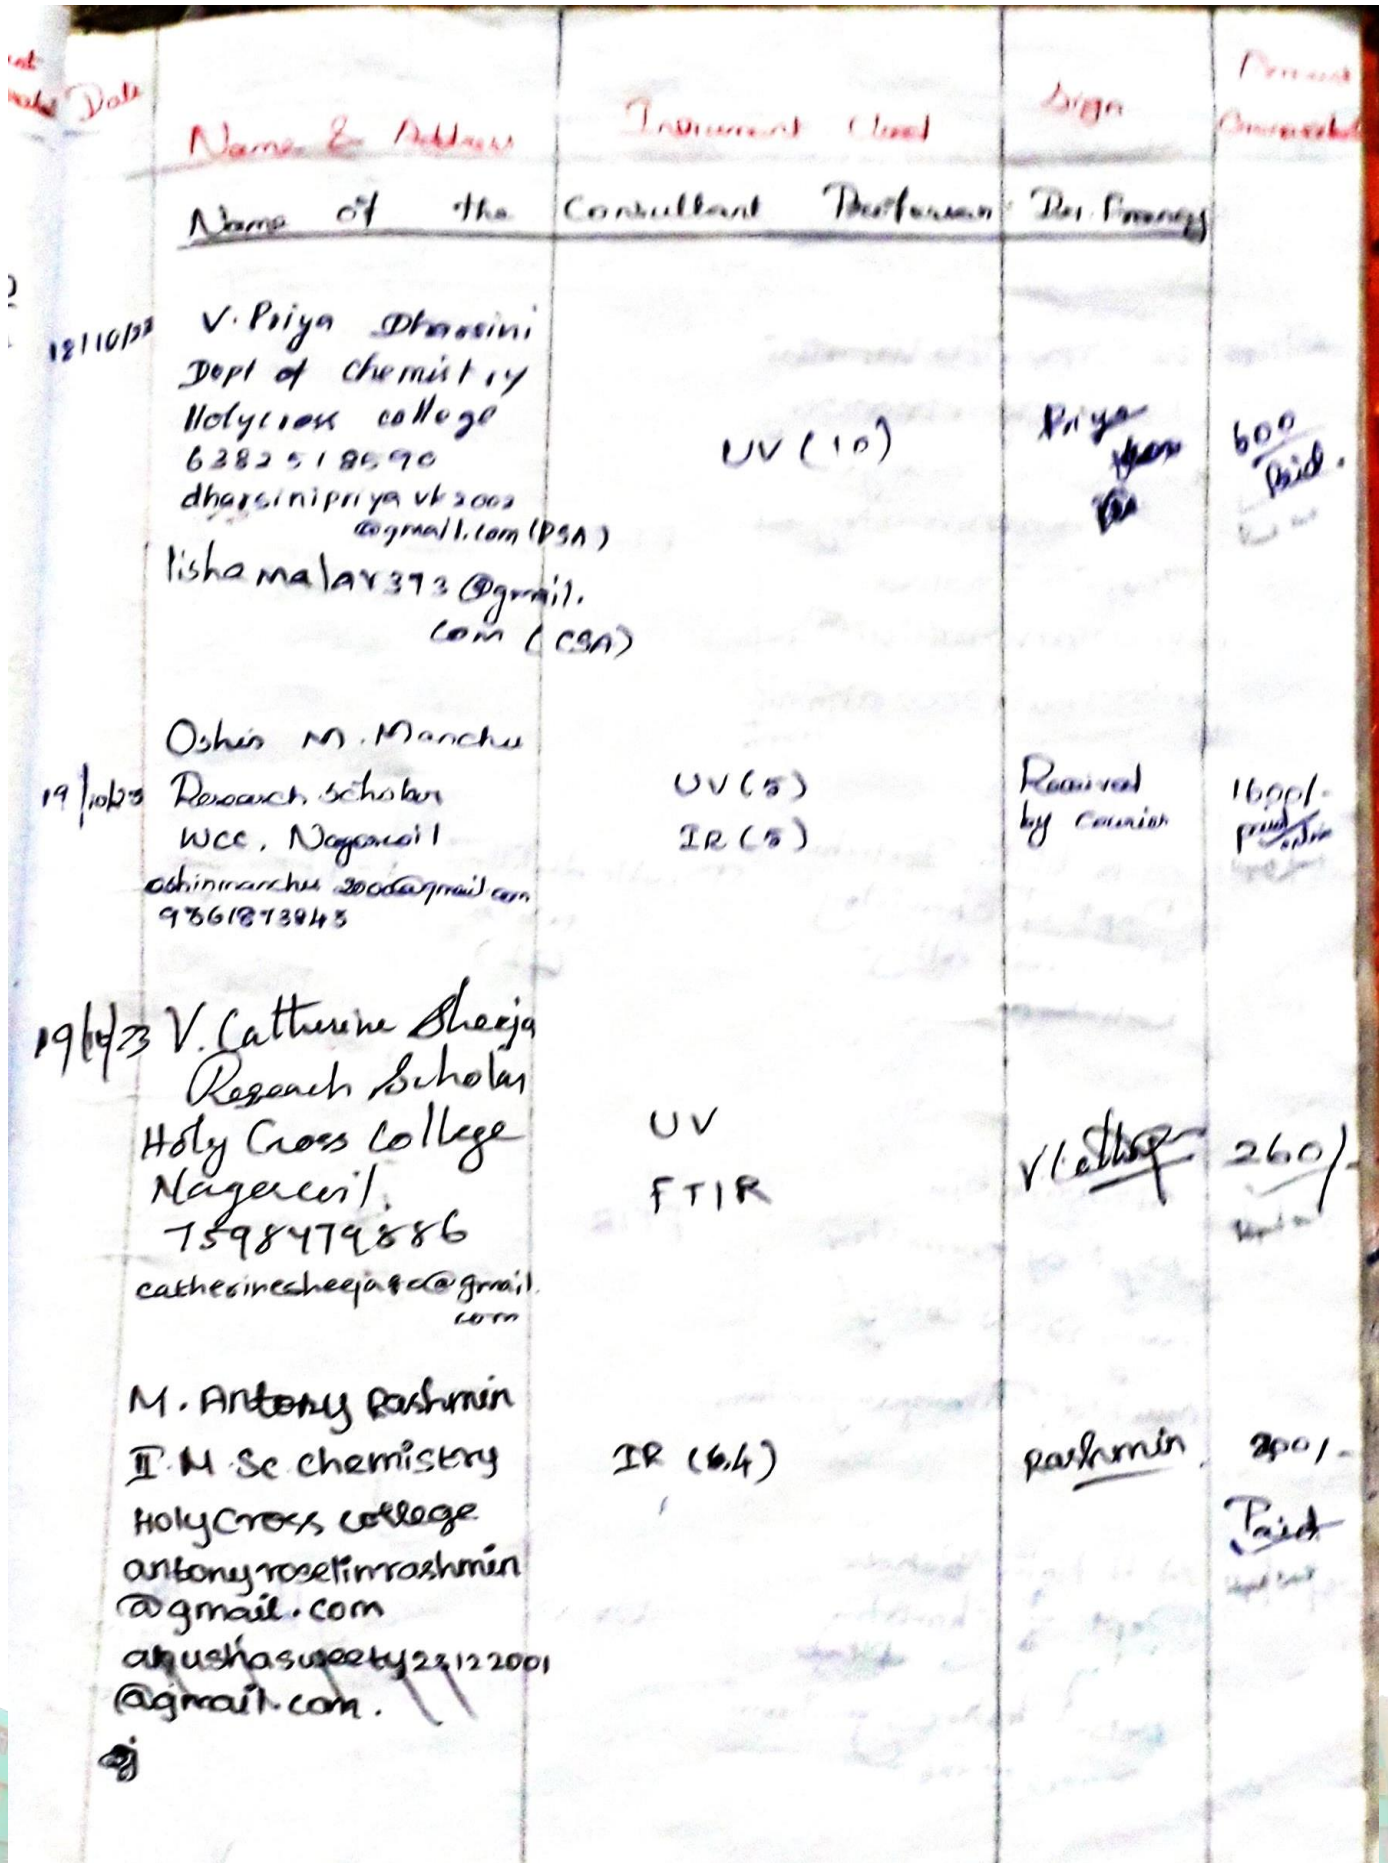 Date
Name & Address
Instrument Used
Sign
Amount
Name of the Consultant Professor: Dr.
18/10/23
V. Priya Dharsini
Dept of Chemistry
Holycross college
6382518590
dharsinipriyavk2002
@gmail.com (PSA)
lishamalar393@gmail.
com (CSA)
UV (10)
Priya
600
Paid.
19/10/23
Oshin M. Manchu
Research Scholar
WCC, Nagercoil
UV (5)
IR (5)
Received
by courier
1600/-
paid
online
19/10/23
V. Catherine Sheeja
Reseach Scholar
Holy Cross College
Nagercoil.
7598479886
UV
FTIR
260/-
M. Antony Rashmin
II M.Sc chemistry
Holy Cross college
antonyroselinrashmin
@gmail.com
anushasweety23122001
@gmail.com.
IR (6,4)
Rashmin
Paid